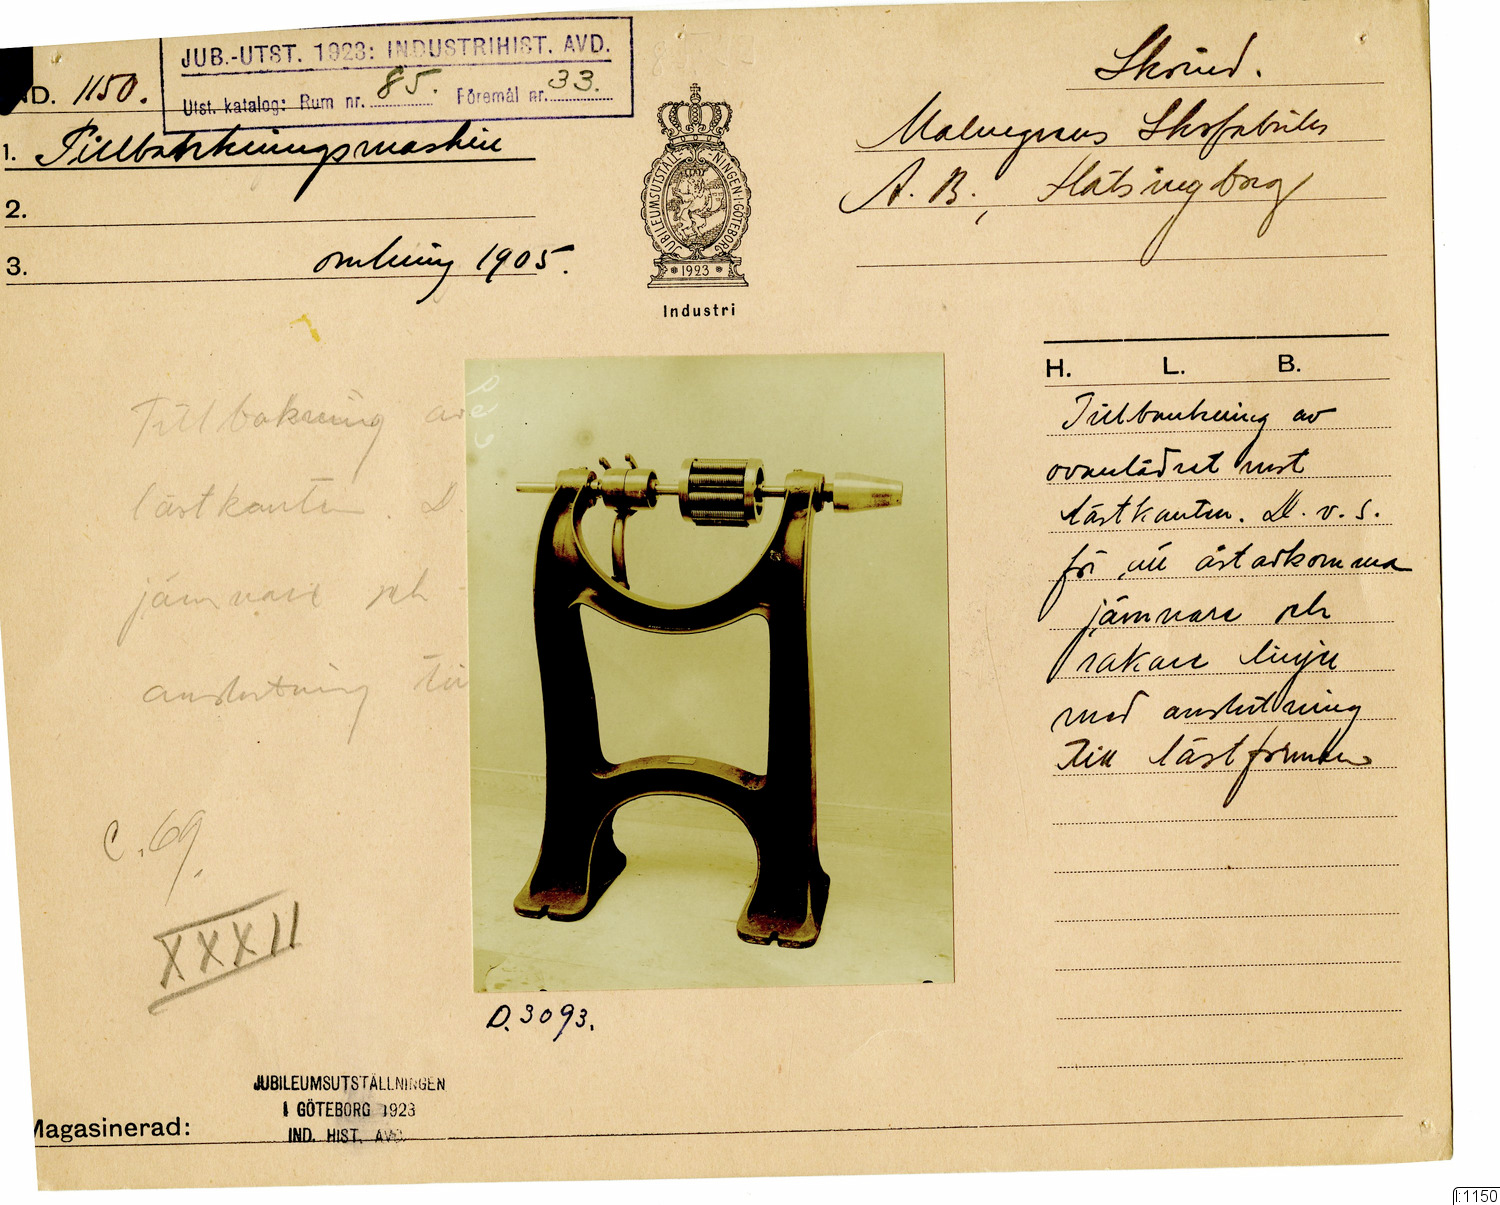 JUB.-UTST. 1923: INDUSTRIHIST. AVD.
Utst. katalog: Rum nr. 85. Föremål nr. 33.
ND. 1150.
1. Tillbankningsmaskin
2.
3. omkring 1905.
JUBILEUMSUTSTÄLLNINGEN I GÖTEBORG
1923
Industri
Skoind.
Malmgrens Skofabriks
A. B., Hälsingborg
H. L. B.
Tillbankning av
ovanlädret mot
lästkanten. D. v. s.
för att åstadkomma
jämnare och
rakare linje
med anslutning
till lästformen
Tillbakning av
lästkanten. D.
jämnare och
anslutning till
C. 69.
XXXII
D. 3093.
JUBILEUMSUTSTÄLLNINGEN
I GÖTEBORG 1923
IND. HIST. AVD.
Magasinerad:
I:1150